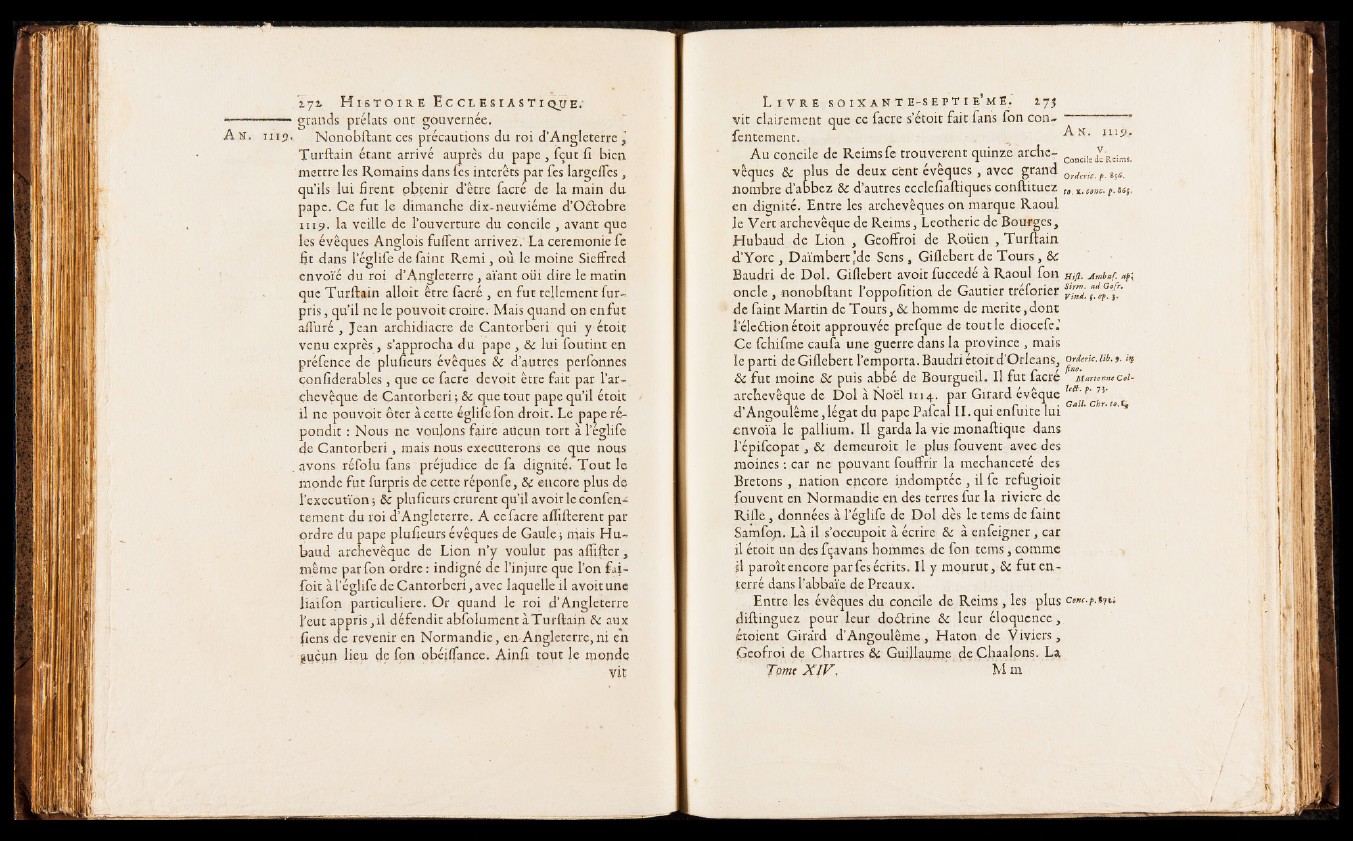 272 HISTOIRE ECCLESIASTIQUE.
grands prélats ont gouvernée.
AN. 1119. Nonobſtant ces précautions du roi d'Angleterre,
Turſtain étant arrivé auprès du pape, ſçut ſi bien
mettre les Romains dans ſes interêts par ſes largeſſes,
qu'ils lui firent obtenir d'être ſacré de la main du
pape. Ce fut le dimanche dix-neuviéme d'Octobre
1119. la veille de l'ouverture du concile, avant que
les évêques Anglois fuſſent arrivez. La ceremonie ſe
fit dans l'égliſe de ſaint Remi, où le moine Sieffred
envoïé du roi d'Angleterre, aïant oüi dire le matin
que Turſtain alloit être ſacré, en fut tellement ſur-
pris, qu'il ne le pouvoit croire. Mais quand on en fut
aſſuré, Jean archidiacre de Cantorberi qui y étoit
venu exprès, s'approcha du pape, & lui ſoutint en
préſence de pluſieurs évêques & d'autres perſonnes
conſiderables, que ce ſacre devoit être fait par l'ar-
chevêque de Cantorberi; & que tout pape qu'il étoit
il ne pouvoit ôter à cette égliſe ſon droit. Le pape ré-
pondit : Nous ne voulons faire aucun tort à l'égliſe
de Cantorberi, mais nous executerons ce que nous
avons réſolu ſans préjudice de ſa dignité. Tout le
monde fut ſurpris de cette réponſe, & encore plus de
l'execution; & pluſieurs crurent qu'il avoit le conſen-
tement du roi d'Angleterre. A ce ſacre aſſiſterent par
ordre du pape pluſieurs évêques de Gaule; mais Hu-
baud archevêque de Lion n'y voulut pas aſſiſter,
même par ſon ordre : indigné de l'injure que l'on fai-
ſoit à l'égliſe de Cantorberi, avec laquelle il avoit une
liaiſon particuliere. Or quand le roi d'Angleterre
l'eut appris, il défendit abſolument à Turſtain & aux
ſiens de revenir en Normandie, en Angleterre, ni en
aucun lieu de ſon obéiſſance. Ainſi tout le monde
vit
LIVRE SOIXANTE-SEPTIE'ME. 273
vit clairement que ce ſacre s'étoit fait ſans ſon con-
ſentement.
AN. 1119.
Au concile de Reims ſe trouverent quinze arche-
V.
Concile de Reims.
vêques & plus de deux cent évêques, avec grand
Orderic. p. 856.
nombre d'abbez & d'autres eccleſiaſtiques conſtituez
to. x. conc. p. 863.
en dignité. Entre les archevêques on marque Raoul
le Vert archevêque de Reims, Leotheric de Bourges,
Hubaud de Lion, Geoffroi de Roüen, Turſtain
d'Yorc, Daïmbert de Sens, Giſlebert de Tours, &
Baudri de Dol. Giſlebert avoit ſuccedé à Raoul ſon
Hiſt. Ambaſ. ap.
Sirm. ad Gofr.
Vind. 5. ep. 3.
oncle, nonobſtant l'oppoſition de Gautier tréſorier
de ſaint Martin de Tours, & homme de merite, dont
l'élection étoit approuvée preſque de tout le dioceſe.
Ce ſchiſme cauſa une guerre dans la province, mais
le parti de Giſlebert l'emporta. Baudri étoit d'Orleans,
Orderic. lib. 9. in
fine.
& fut moine & puis abbé de Bourgueil. Il fut ſacré
Martenne Col-
lect. p. 73.
archevêque de Dol à Noël 1114. par Girard évêque
Gall. Chr. to.
d'Angoulême, légat du pape Paſcal II. qui enſuite lui
envoïa le pallium. Il garda la vie monaſtique dans
l'épiſcopat, & demeuroit le plus ſouvent avec des
moines : car ne pouvant ſouffrir la mechanceté des
Bretons, nation encore indomptée, il ſe refugioit
ſouvent en Normandie en des terres ſur la riviere de
Riſle, données à l'égliſe de Dol dès le tems de ſaint
Samſon. Là il s'occupoit à écrire & à enſeigner, car
il étoit un des ſçavans hommes de ſon tems, comme
il paroît encore par ſes écrits. Il y mourut, & fut en-
terré dans l'abbaïe de Preaux.
Entre les évêques du concile de Reims, les plus
Conc. p. 872.
diſtinguez pour leur doctrine & leur éloquence,
étoient Girard d'Angoulême, Haton de Viviers,
Geofroi de Chartres & Guillaume de Chaalons. La
Tome XIV. M m